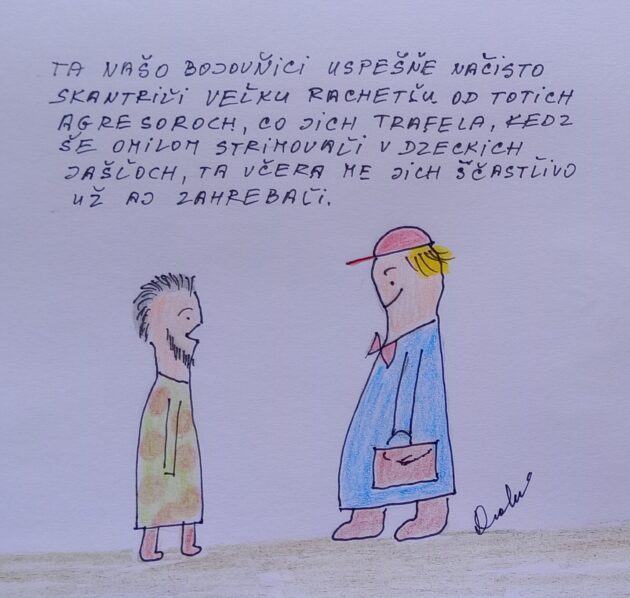 TA NAŠO BOJOVŇICI USPEŠŇE NAČISTO
SKANTRIĽI VEĽKU RACHETĽU OD TOTICH
AGRESOROCH, CO JICH TRAFELA, KEDZ
ŠE OMILOM STRIMOVAĽI V DZECKICH
JAŠĽOCH, TA VČERA ME JICH ŠČASTĽIVO
UŽ AJ ZAHREBAĽI.